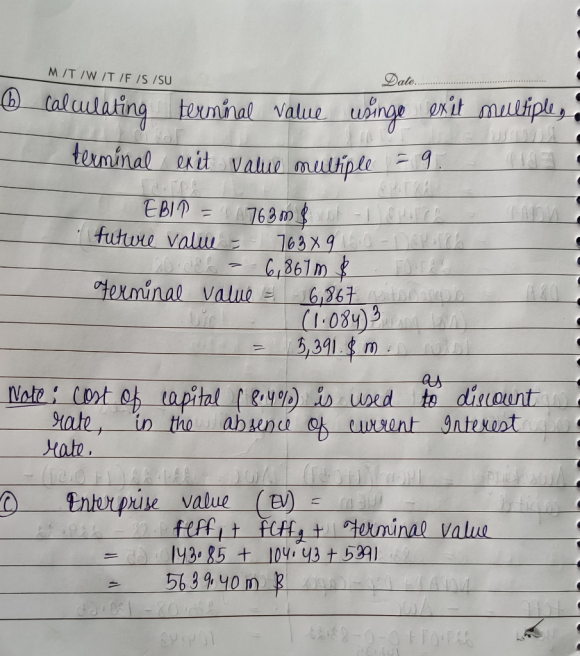 M / T / W / T / F / S / SU Date
(b) calculating terminal value usinge exit multiple,
terminal exit value multiple = 9.
EBIT = 763 m $
future value = 763 x 9
= 6,867 m $
Terminal value = 6,867
(1.084)3
= 5,391 $ m.
as
Note : cost of capital (8.4%) is used to discount
rate, in the absence of current Interest
rate.
(c) Enterprise value (EV) =
fcff1 + fcff2 + Terminal value
= 143.85 + 104.43 + 5391
= 5639.40 m $